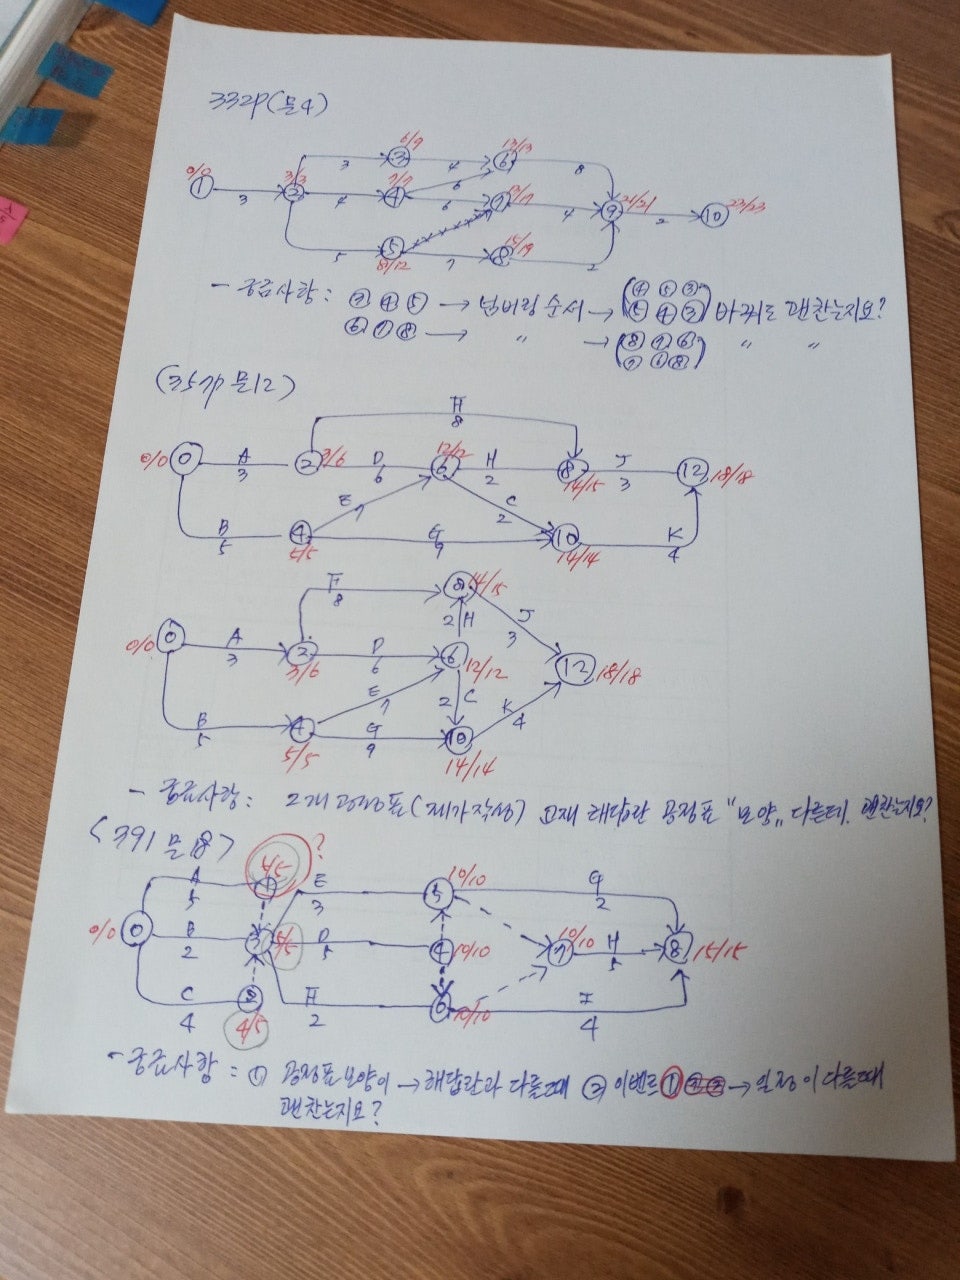 332P(문4)
6/9 13/13
0/0 3/3 3 ③ 4 ⑥ 8
① 3 ② 4 7/7 ④ 6 17/17 ⑦ 4 ⑨ 21/21 2 ⑩ 23/23
6
5 ⑤ 7 ⑧ 15/19 2
8/12
- 궁금사항 : ③ ④ ⑤ → 넘버링 순서 → (④ ⑤ ③ ⑤ ④ ③) 바꿔도 괜찮는지요?
⑥ ⑦ ⑧ → 〃 → (⑧ ⑦ ⑥ ⑦ ⑥ ⑧) 〃 〃
(357p 문12)
F
8
0/0 ⓪ A 3 ② 3/6 D 6 ⑥ 12/12 H 2 ⑧ 14/15 J 3 ⑫ 18/18
E 7 C 2
B 5 ④ 5/5 G 9 ⑩ 14/14 K 4
F 8 ⑧ 14/15
2 H J 3
0/0 ⓪ A 3 ② 3/6 D 6 ⑥ 12/12 ⑫ 18/18
E 7 2 C K 4
B 5 ④ 5/5 G 9 ⑩ 14/14
- 궁금사항 : 2개 공정표(제가작성) 교재 해답란 공정표 "모양" 다른데. 괜찮는지요?
<391 문18>
A 5 ① 5/5 ? E 3 ⑤ 10/10 G 2
0/0 ⓪ B 2 ③ 5/5 D 5 ④ 10/10 ⑦ 10/10 H 5 ⑧ 15/15
C 4 ② 4/5 F 2 ⑥ 10/10 I 4
- 궁금사항 : ① 공정표모양이 → 해답란과 다를때 ② 이벤트 ① → 일정이 다를때
괜찮는지요?